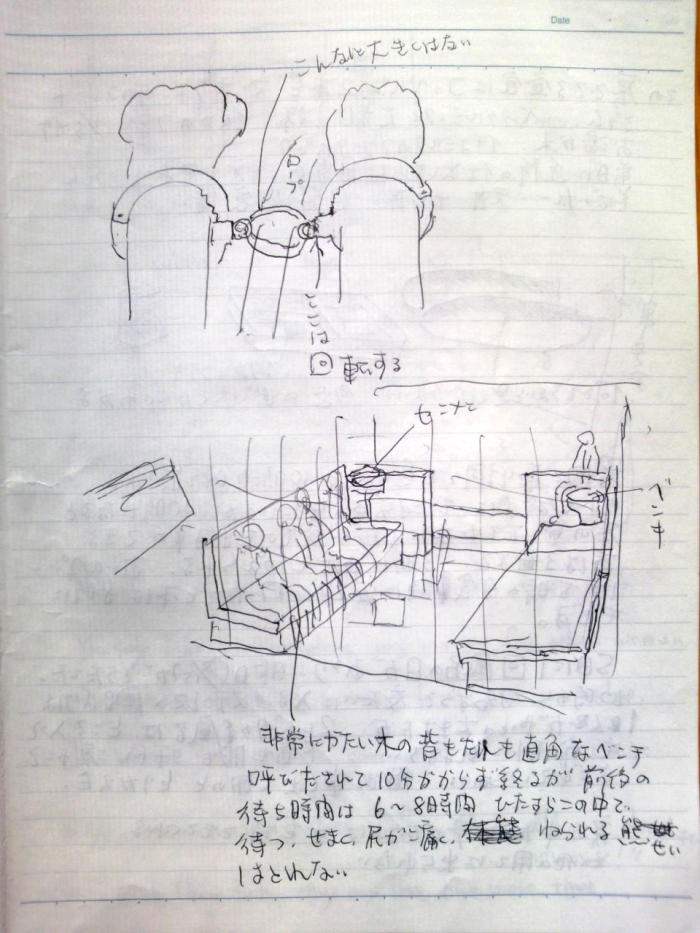 Date
こんなに大きくはない
ロープ
ここは
回転する
センメン
ベンキ
非常にかたい木の背もたれも直角なベンチ
呼びだされて10分かからず終るが前後の
待ち時間は6〜8時間 ひたすらこの中で
待つ、せまく、尻がと痛く、ねられる態
せい
はとれない